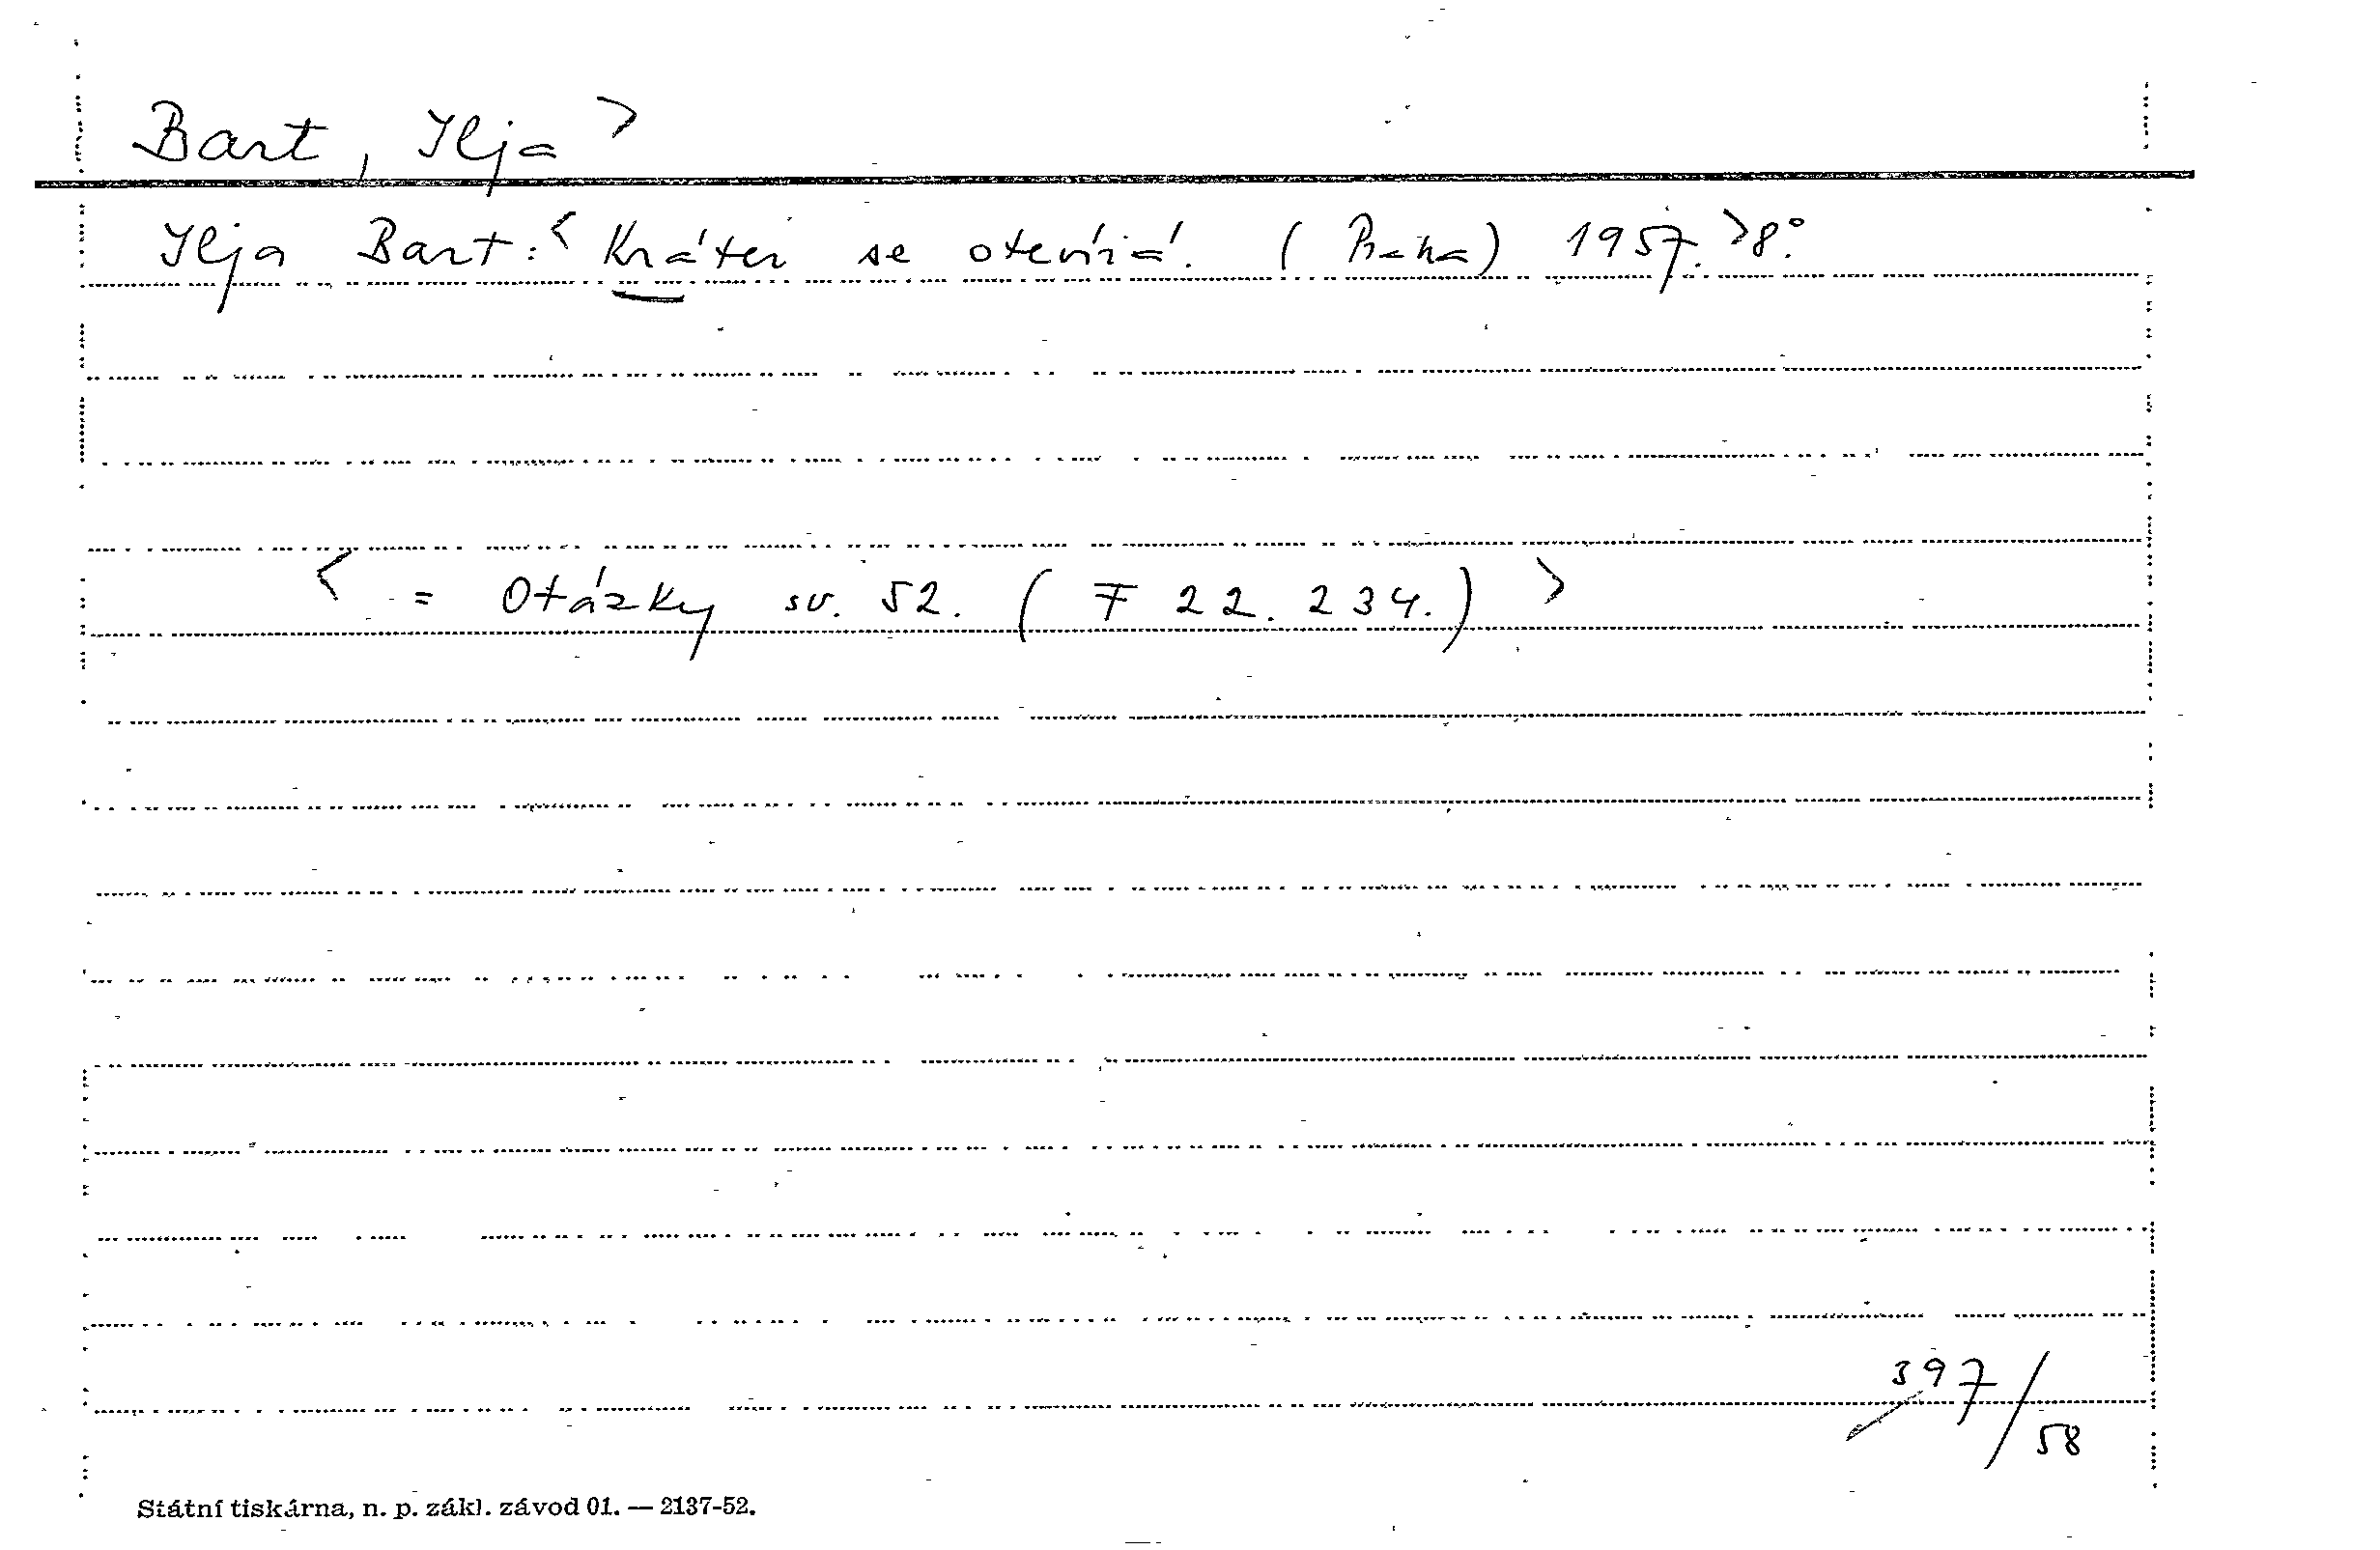 Bart, Ilja >
Ilja Bart: < Kráter se otevírá. (Praha) 1957. > 8°.
< = Otázky sv. 52. (F 22.234.) >
397/58
Státní tiskárna, n. p. zákl. závod 01. — 2137-52.